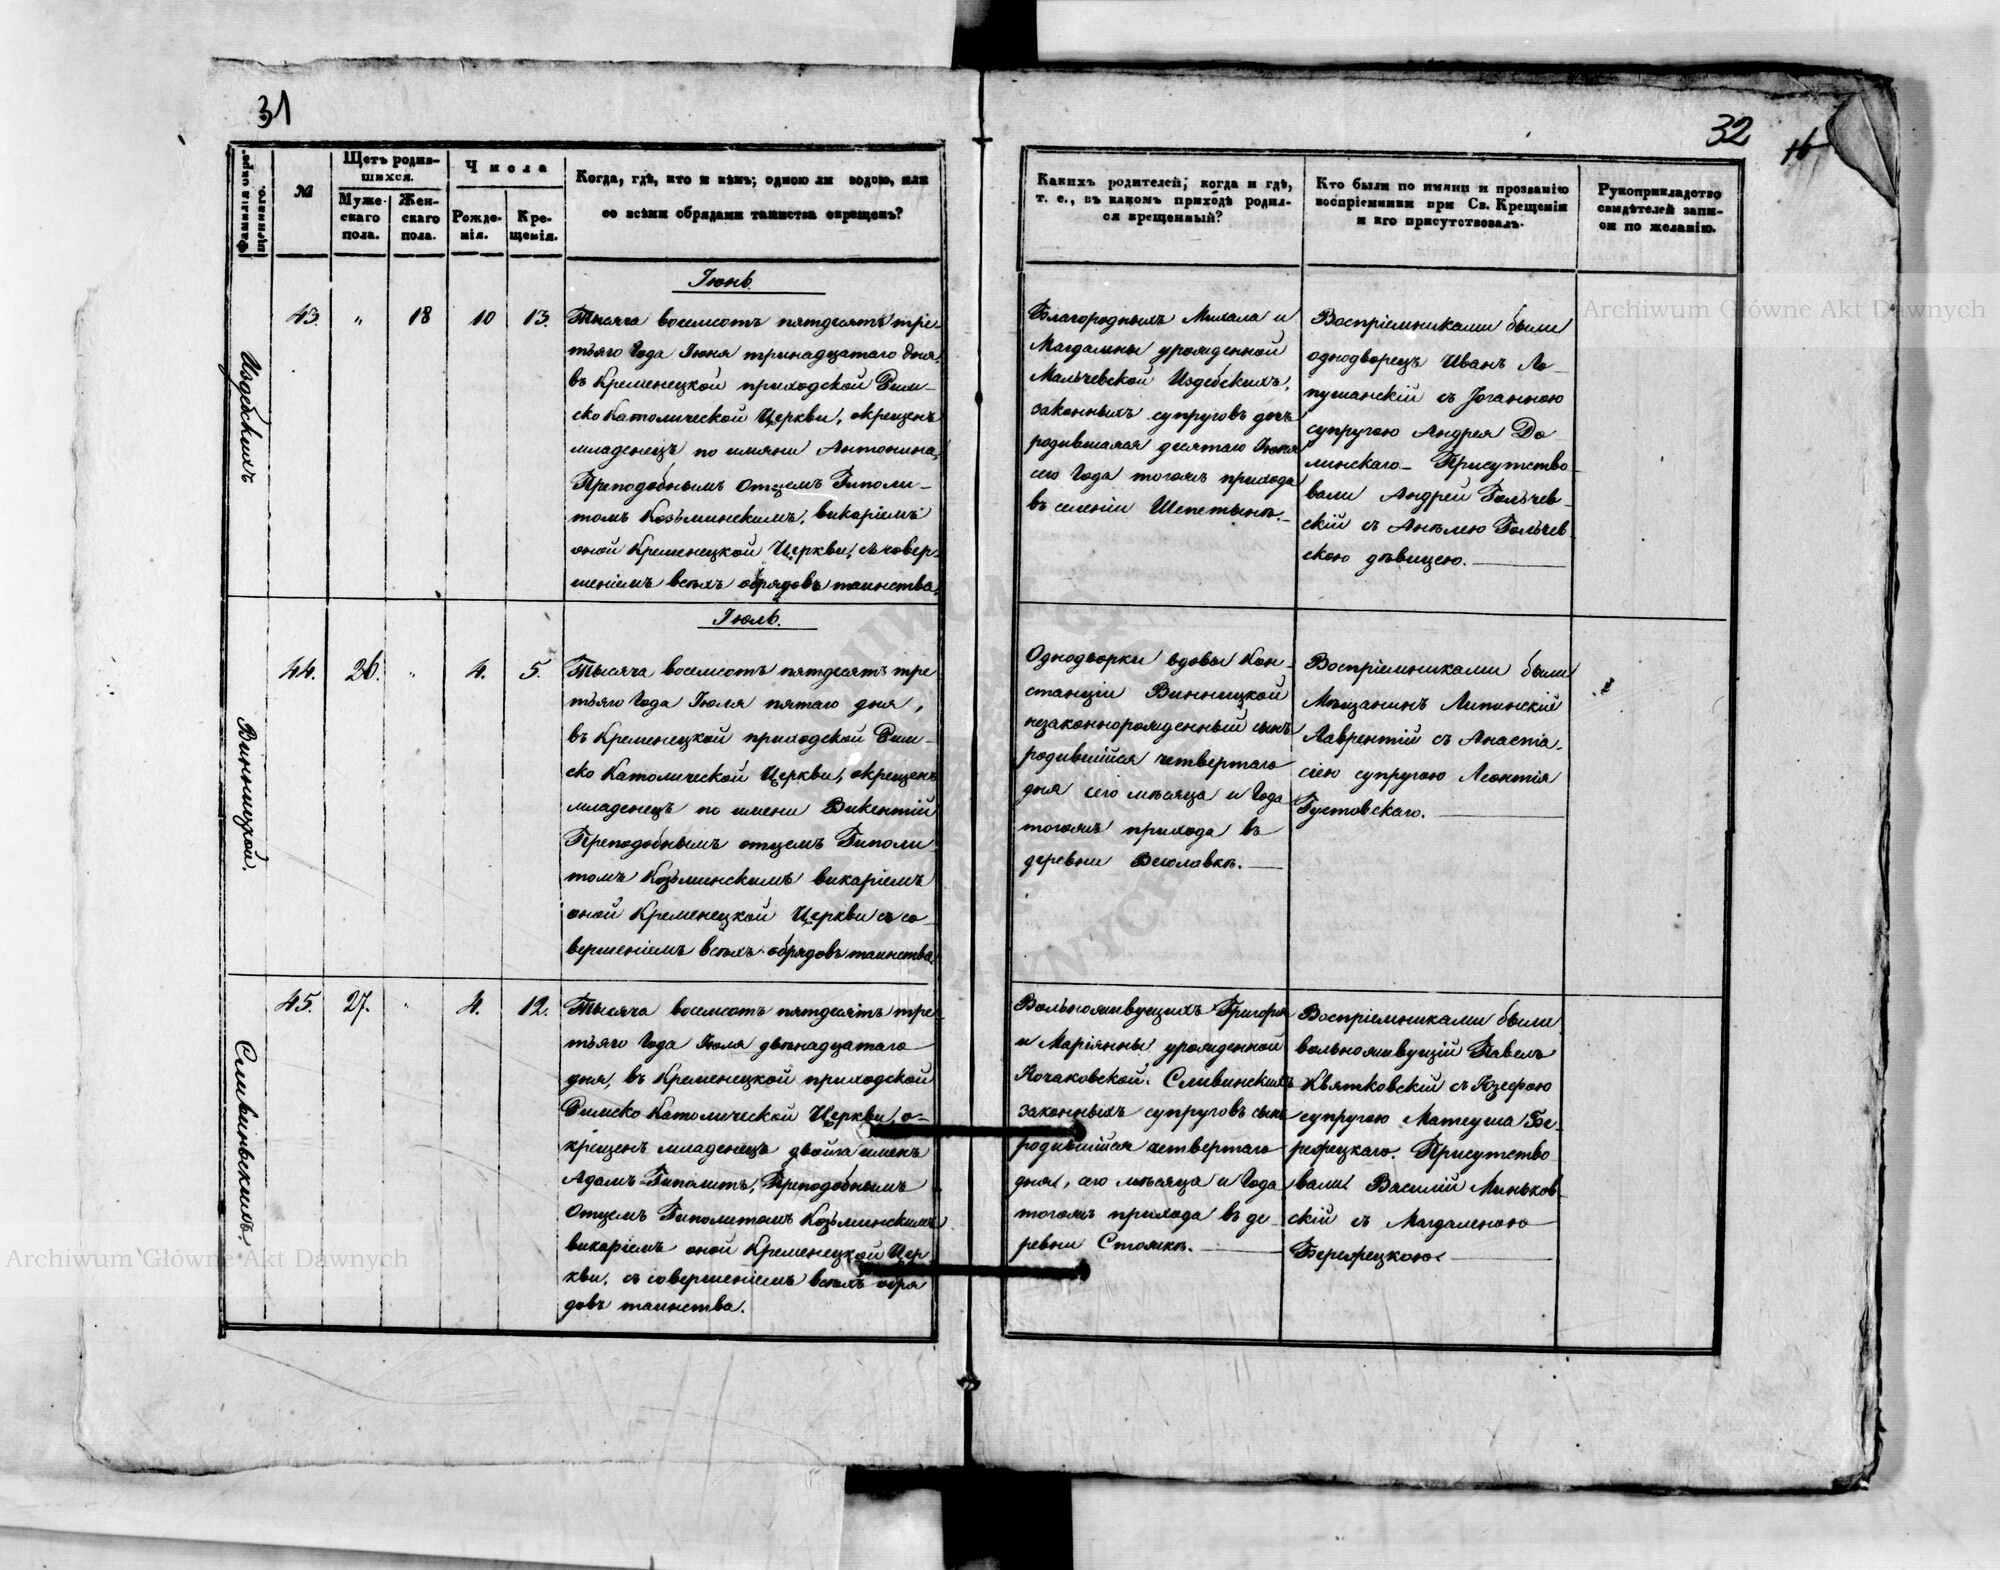 31
Фамилія окре-
щеннаго.
№
Щетъ родив-
шихся.
Муже-
скаго
пола.
Жен-
скаго
пола.
Числа
Рожде-
нія.
Кре-
щенія.
Когда, гдѣ, кто и кѣмъ; одною ли водою, или
со всѣми обрядами таинства окрещенъ?
Іюнь.
Издебскихъ
43.
"
18
10
13.
Тысяча восемсотъ пятдесятъ тре
тьяго Года Іюня тринадцатаго дня,
въ Кременецкой приходской Рим-
ско Католической Церкви, окрещенъ
младенецъ по имяни Антонина,
Преподобнымъ Отцемъ Гиполи-
томъ Козьминскимъ, викаріемъ
оной Кременецкой Церкви, съ совер-
шеніемъ всѣхъ обрядовъ таинства.
Іюль.
Винницкой.
44.
26.
"
4.
5.
Тысяча восемсотъ пятдесятъ тре
тьяго Года Іюля пятаго дня,
въ Кременецкой приходской Рим-
ско Католической Церкви, окрещенъ
младенецъ по имени Викентій
Преподобнымъ отцемъ Гиполи
томъ Козьминскимъ викаріемъ
оной Кременецкой Церкви съ со-
вершеніемъ всѣхъ обрядовъ таинства.
Сливинскихъ.
45.
27.
"
4.
12.
Тысяча восемсотъ пятдесятъ тре-
тьяго Года Іюля двѣнадцатаго
дня, въ Кременецкой приходской
Римско Католической Церкви, о-
крещенъ младенецъ двойга именъ
Адамъ-Гиполитъ, Преподобнымъ
Отцемъ Гиполитомъ Козьминскимъ
викаріемъ оной Кременецкой Цер
кви, съ совершеніемъ всѣхъ обря
довъ таинства.
32
16
Какихъ родителей; когда и гдѣ,
т. е., въ какомъ приходѣ родил-
ся крещенный?
Кто были по имяни и прозванію
воспріемники при Св. Крещеніи
и кто присутствовалъ.
Рукоприкладство
свидѣтелей запи-
си по желанію.
Благородныхъ Михала и
Магдалины урожденной
Мальчевской Издебскихъ,
законныхъ супруговъ дочь
родившаяся десятаго Іюня
сего Года тогожъ прихода
въ селеніи Шепетынѣ.
Воспріемниками были
однодворецъ Иванъ Ло-
пушанскій съ Іоганною
супругою Андрея До
линскаго - Присутство
вали Андрей Гольчев-
скій съ Анѣлею Гольчев
скою дѣвицею.
Однодворки вдовы Кон-
станціи Винницкой
незаконнорожденный сынъ
родившійся четвертаго
дня сего мѣсяца и Года
тогожъ прихода въ
деревни Веселавкѣ.
Воспріемниками были
Мѣщанинъ Липинскій
Лаврентій съ Анаста-
сіею супругою Леонтія
Густовскаго.
Вольноживущихъ Григорія
и Маріянны урожденной
Кочаковской. Сливинскихъ
законныхъ супруговъ сынъ
родившійся четвертаго
дня, сего мѣсяца и Года
тогожъ прихода въ де-
ревни Стожкѣ.
Воспріемниками были
вольноживущій Павелъ
Квятковскій съ Юзефою
супругою Матеуша Бе-
режецкаго. Присутство
вали Василій Миньков-
скій съ Магдаленою
Бережецкою
Archiwum Główne Akt Dawnych
Archiwum Główne Akt Dawnych